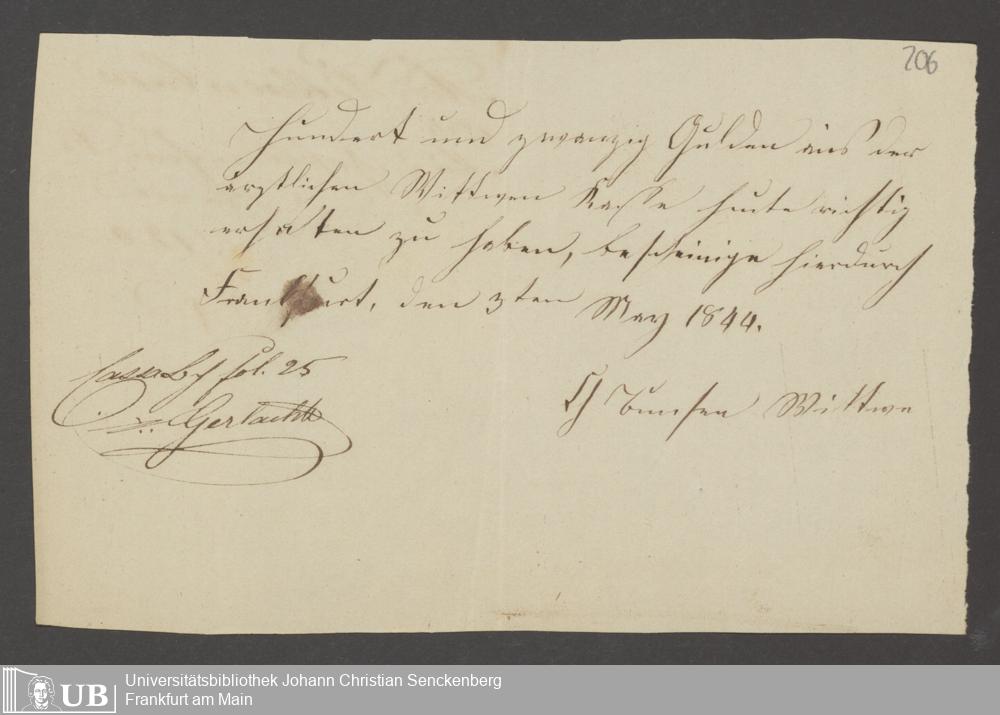 206
Hundert und zwanzig Gulden aus der
ärztlichen Wittwen Kasse heute richtig
erhalten zu haben, bescheinige hierdurch
Frankfurt, den 3ten May 1844.
fol. 25
Gerlach
Ch Bunsen Wittwe
UB
Universitätsbibliothek Johann Christian Senckenberg
Frankfurt am Main